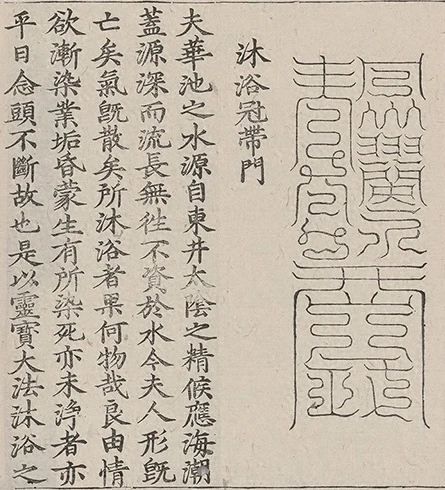 沐浴冠帶門
夫華池之水源自東井太陰之精候應海潮
蓋源深而流長無往不資於水今夫人形旣
亡矣氣旣散矣所沐浴者果何物哉良由情
欲漸染業垢昏蒙生有所染死亦未淨者亦
平日念頭不斷故也是以靈寶大法沐浴之